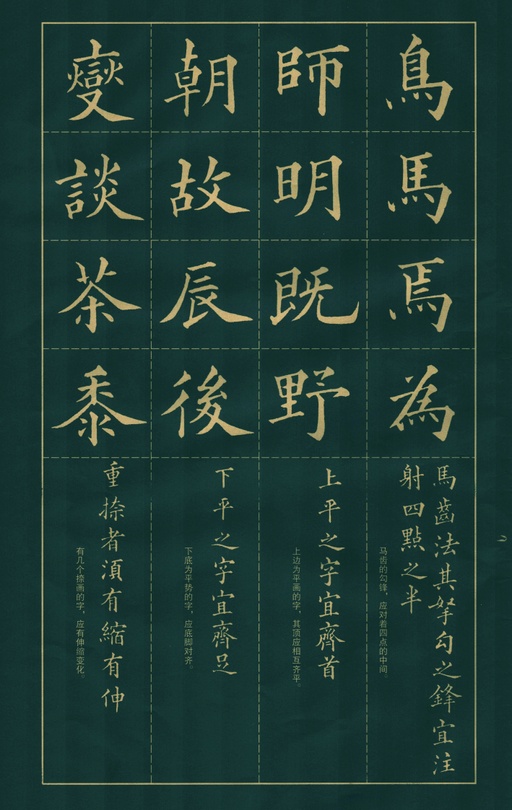 鳥
馬
焉
為
馬齒法其挐勾之鋒宜注
射四點之半
马齿的勾锋，应对着四点的中间
師
明
既
野
上平之字宜齊首
上边为平画的字，其顶应相互齐平。
朝
故
辰
後
下平之字宜齊足
下底为平势的字，应底脚对齐。
變
談
茶
黍
重捺者湏有縮有伸
有几个捺画的字，应有伸缩变化。